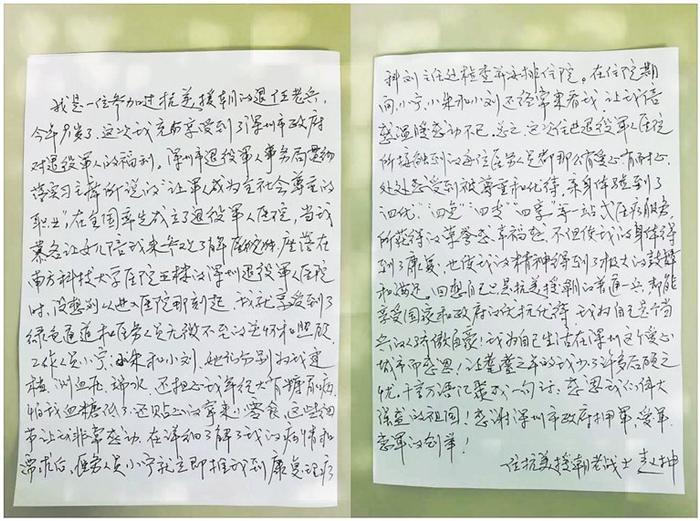 我是一位参加过抗美援朝的退伍老兵,
今年岁了,这次我充分享受到了深圳市政府
对退役军人的福利。深圳市退役军人事务局贯彻
落实习主席所说的"让军人成为全社会尊重的
职业",在全国率先成立了退役军人医院,当我
慕名让女儿陪我来参观了解医院,座落在
南方科技大学医院五楼的深圳退役军人医院
时,没想到从进入医院那刻起,我就享受到了
绿色通道和医务人员无微不至的关怀和照顾
工作人员小宁、小朱和小刘,她们分别为我建
档、测血压、端水,还担心我年纪大有糖尿病,
怕我血糖低了,还贴心的拿来小零食,这些细
节让我非常感动,在详细了解了我的病情和
需求后,医务人员小宁就立即推我到康复理疗
科刘主任处检查并安排住院。在住院期
间,小宁、小朱和小刘还经常来看我,让我倍
感温暖感动不已。总之,这次住进退役军人医院
所接触到的每位医务人员都那么有爱心有耐心,
处处感受到被尊重和优待,亲身体验到了
"四优""四免""四专""四享"等一站式医疗服务,
所获得的荣誉感、幸福感,不但使我的身体得
到了康复,也使我的精神得到了极大的鼓舞
和满足。回想自己只是抗美援朝的普通一兵,却能
享受国家和政府的优抚优待,我为自己是个当
兵的人骄傲自豪!我为自己生活在深圳这个爱心
城市而感恩!让耄耋之年的我少了许多后顾之
忧,千言万语汇聚成一句话:感恩我们伟大
强盛的祖国!感谢深圳市政府拥军、爱军
惠军的创举!
一位抗美援朝老战士 赵坤